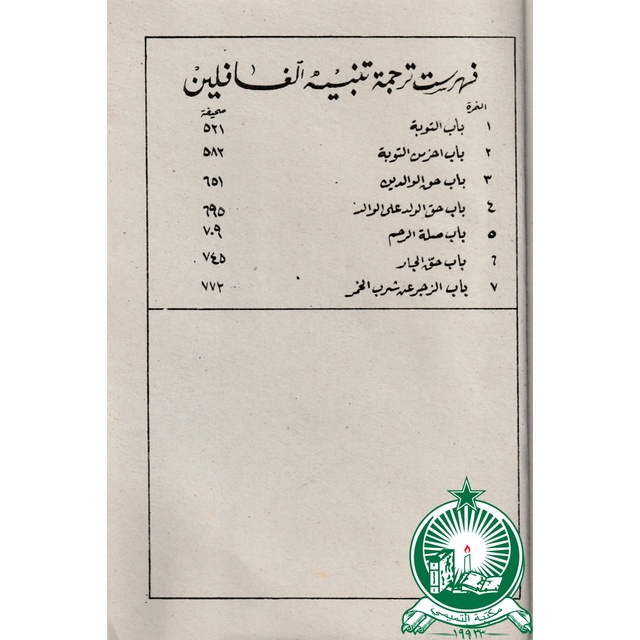 فهرست ترجمة تنبيه الغافلين
النمرة صحيفة
١ باب التوبة ٥٢١
٢ باب اخر من التوبة ٥٨٢
٣ باب حق الوالدين ٦٥١
٤ باب حق الولد على الوالد ٦٩٥
٥ باب صلة الرحم ٧٠٩
٦ باب حق الجار ٧٤٥
٧ باب الزجر عن شرب الخمر ٧٧٢
مكتبة التميمي